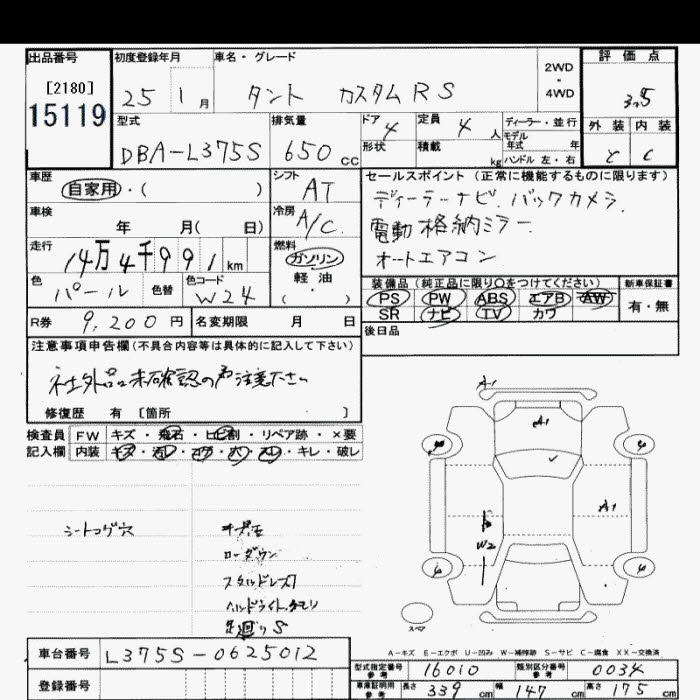 出品番号 初度登録年月 車名・グレード 評価点
[2180] 25 1月 タント カスタムRS 2WD・4WD 3.5
15119
型式 排気量 ドア 4 定員 4人 ディーラー・並行 外装 内装
DBA-L375S 650cc 形状 積載 kg モデル年式 年 ハンドル 左・右 C
車歴 シフト セールスポイント(正常に機能するものに限ります)
自家用・( ) AT ディーラーナビ、バックカメラ、
車検 冷房 電動格納ミラー
年 月( 日) A/C オートエアコン
走行 燃料
14万4千991km ガソリン
色 色替 色コード 軽油 装備品(純正品に限り○をつけてください) 新車保証書
パール W24 ( ・ ) PS PW ABS エアB AW 有・無
R券 9,200円 名変期限 月 日 SR ナビ TV カワ
後日品
注意事項申告欄(不具合内容等は具体的に記入して下さい)
社外品は未確認の為注意下さい
修復歴 有 [箇所 ]
検査員 FW キズ・飛石・ヒビ割・リペア跡・×要
記入欄 内装 キズ・汚レ・コゲ・穴・スレ・キレ・破レ
A-1
A-1
A-1
W2
4
4
4
4
シートコゲ穴
ローダウン
スタッドレス
ヘッドライトクモリ
足廻りS
スペア
A-キズ E-エクボ U-凹み W-補修跡 S-サビ C-腐食 XX-交換済
車台番号 L375S-0625012 型式指定番号 参考 16010 類別区分番号 参考 0034
登録番号 車庫証明用 参考 長さ 339cm 幅 147cm 高さ 175cm